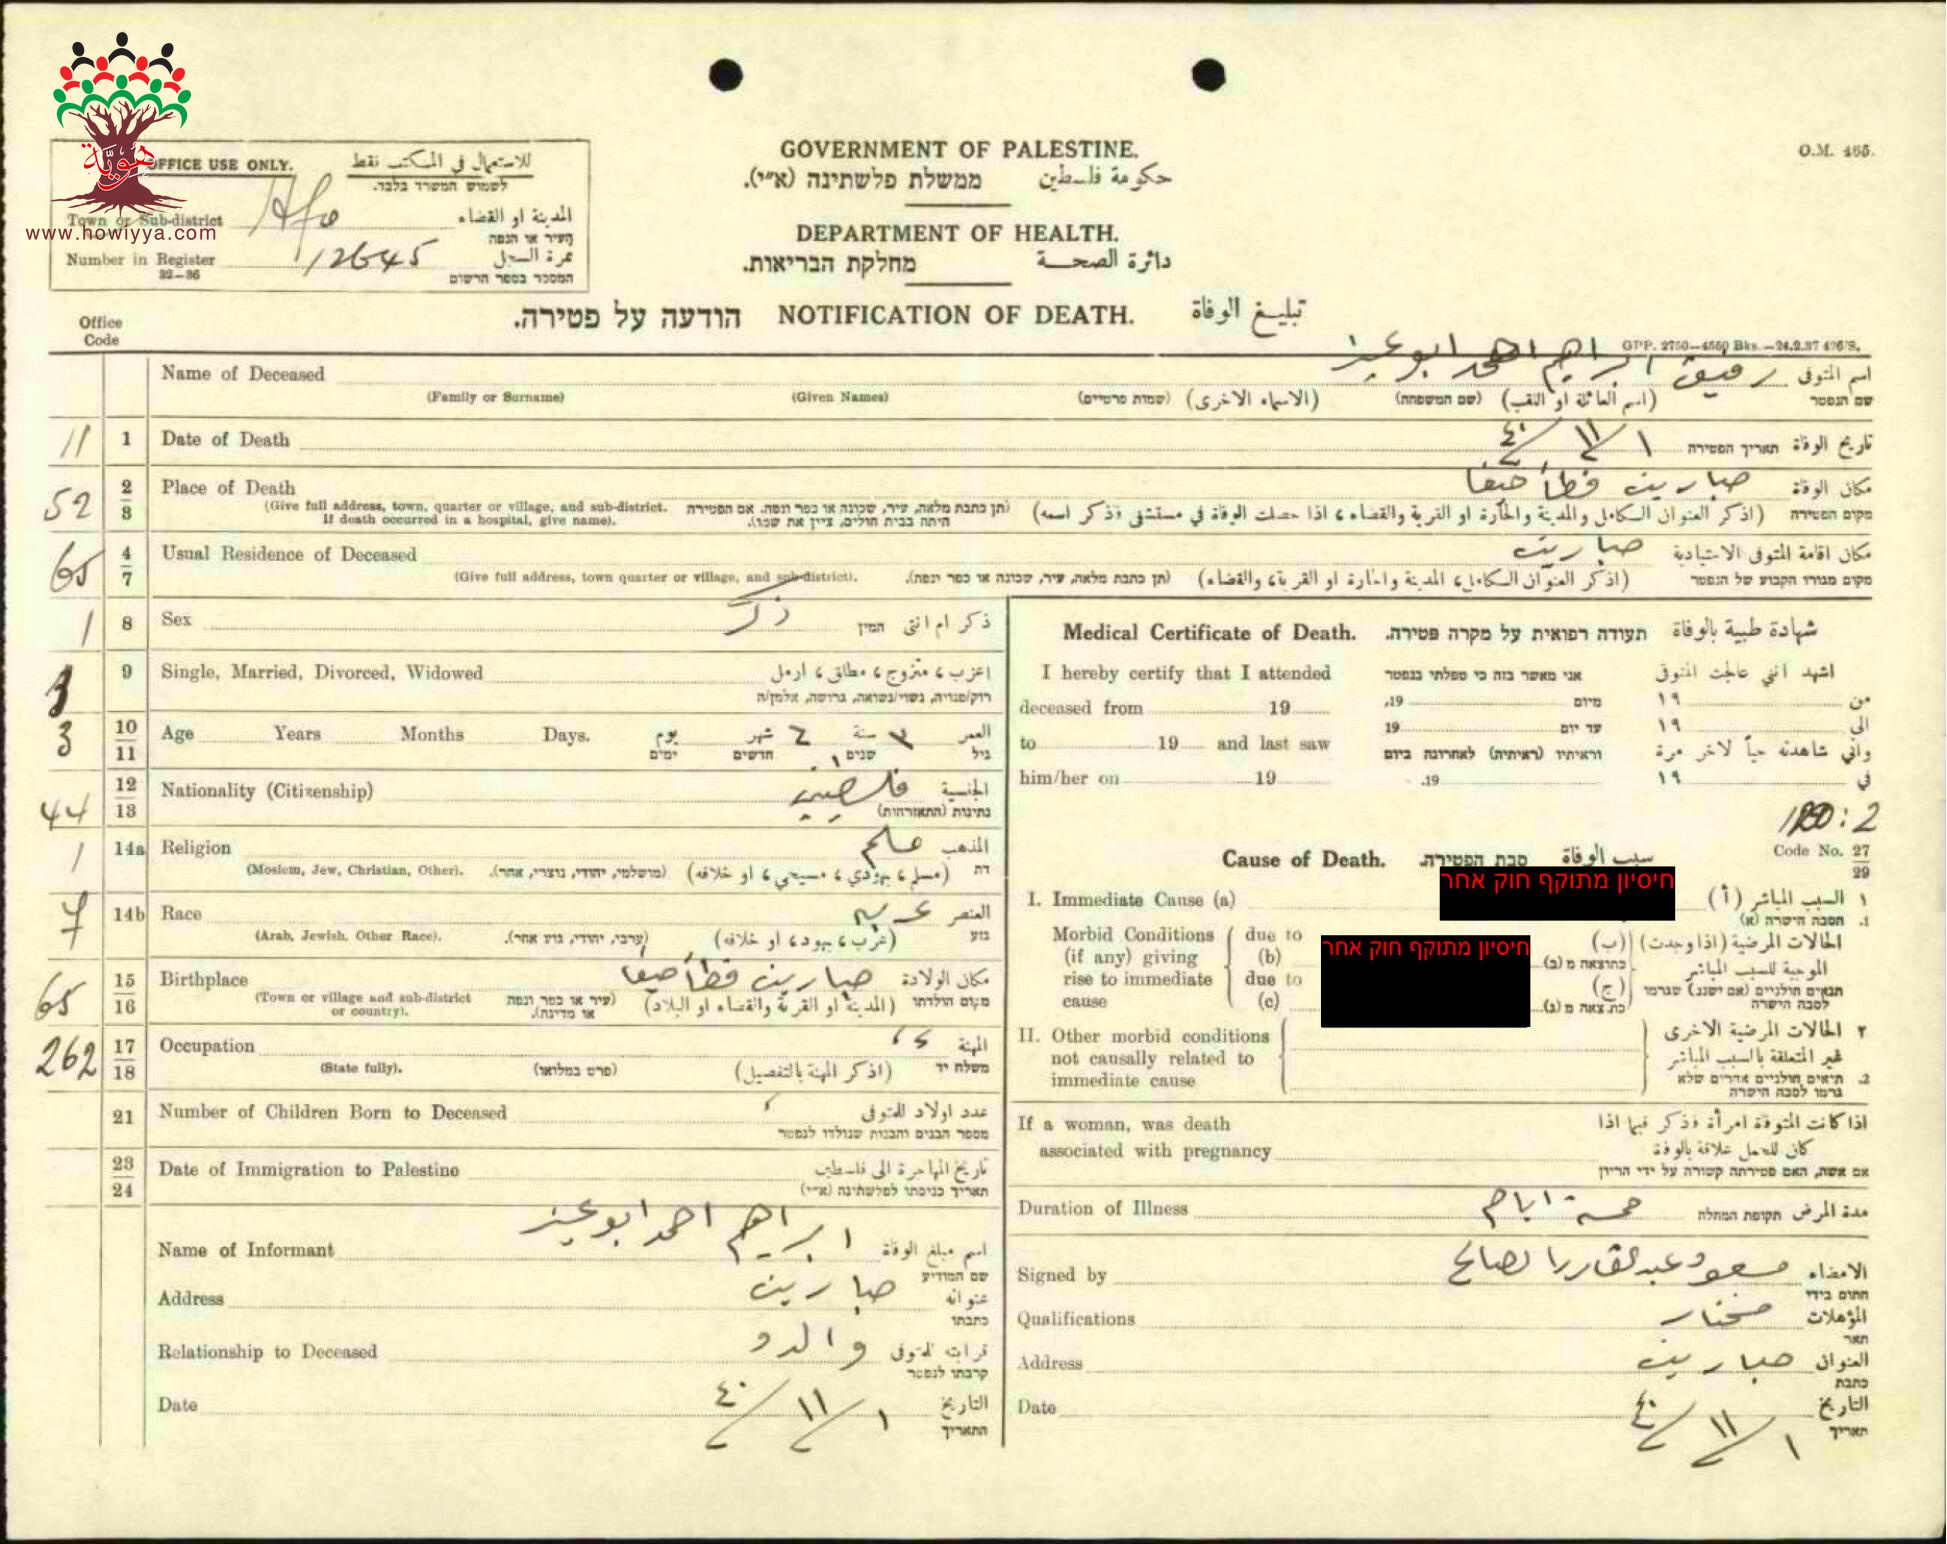 هويّة
www.howiyya.com
OFFICE USE ONLY. للاستعمال في المكتب فقط
לשמוש המשרד בלבד.
Town or Sub-district المدينة او القضاء
העיר או הנפה
Number in Register 12645 نمرة السجل
32—36 המספר בספר הרשום
GOVERNMENT OF PALESTINE.
ממשלת פלשתינה (א״י). حكومة فلسطين
DEPARTMENT OF HEALTH.
מחלקת הבריאות. دائرة الصحة
O.M. 465.
הודעה על פטירה. NOTIFICATION OF DEATH. تبليغ الوفاة
Office Code
GPP. 2750—4550 Bks.—24.2.37 426/S.
Name of Deceased رفيق ابراهيم احمد ابو عيز اسم المتوفى
(Family or Surname) (Given Names) (שמות פרטיים) (الاسماء الاخرى) (שם המשפחה) (اسم العائلة او اللقب) שם הנפטר
11 1 Date of Death ١/١١/٤٠ תאריך הפטירה تاريخ الوفاة
52 2/3 Place of Death صبارين قضاء حيفا مكان الوفاة
(Give full address, town, quarter or village, and sub-district. If death occurred in a hospital, give name). (תן כתבת מלאה, עיר, שכונה או כפר ונפה. אם הפטירה היתה בבית חולים, ציין את שמו). (اذكر العنوان الكامل والمدينة والحارة او القرية والقضاء، اذا حصلت الوفاة في مستشفى فذكر اسمه) מקום הפטירה
65 4/7 Usual Residence of Deceased صبارين مكان اقامة المتوفى الاعتيادية
(Give full address, town quarter or village, and sub-district). (תן כתבת מלאה, עיר, שכונה או כפר ונפה). (اذكر العنوان الكامل، المدينة والحارة او القرية، والقضاء) מקום מגורו הקבוע של הנפטר
1 8 Sex ذكر המין ذكر ام انثى
9 Single, Married, Divorced, Widowed اعزب، متزوج، مطلق، ارمل
רוק/פנויה, נשוי/נשואה, גרושה, אלמן/ה
3 10/11 Age Years Months Days. يوم شهر ٦ سنة العمر
ימים חדשים שנים גיל
44 12/13 Nationality (Citizenship) فلسطيني الجنسية
נתינות (התאזרחות)
1 14a Religion مسلم المذهب
(Moslem, Jew, Christian, Other). (מושלמי, יהודי, נוצרי, אחר). (مسلم، يهودي، مسيحي، او خلافه) דת
7 14b Race عربي العنصر
(Arab, Jewish, Other Race). (ערבי, יהודי, גזע אחר). (عرب، يهود، او خلافه) גזע
65 15/16 Birthplace صبارين قضاء حيفا مكان الولادة
(Town or village and sub-district or country). (עיר או כפר ונפה או מדינה). (المدينة او القرية والقضاء او البلاد) מקום הולדתו
262 17/18 Occupation المهنة
(State fully). (פרט במלואו) (اذكر المهنة بالتفصيل) משלח יד
21 Number of Children Born to Deceased عدد اولاد المتوفى
מספר הבנים והבנות שנולדו לנפטר
23/24 Date of Immigration to Palestine تاريخ المهاجرة الى فلسطين
תאריך כניסתו לפלשתינה (א״י)
Name of Informant ابراهيم احمد ابو عيز اسم مبلغ الوفاة
שם המודיע
Address صبارين عنوانه
כתבתו
Relationship to Deceased والده قرابته للمتوفى
קרבתו לנפטר
Date ١/١١/٤٠ التاريخ
התאריך
Medical Certificate of Death. תעודה רפואית על מקרה פטירה. شهادة طبية بالوفاة
I hereby certify that I attended אני מאשר בזה כי טפלתי בנפטר اشهد انني عالجت المتوفى
deceased from 19 19, מיום من ١٩
to 19 and last saw 19 עד יום الى ١٩
וראיתיו (ראיתיה) לאחרונה ביום واني شاهدته حياً لاخر مرة
him/her on 19 19. في ١٩
Cause of Death. סבת הפטירה. سبب الوفاة Code No. 27/29
I. Immediate Cause (a) חיסיון מתוקף חוק אחר ١ السبب المباشر (أ)
1. הסבה הישרה (א)
Morbid Conditions (if any) giving rise to immediate cause due to (b) due to (c) חיסיון מתוקף חוק אחר (ب) الحالات المرضية (اذا وجدت)
כתוצאה מ (ב) الموجبة للسبب المباشر
(ج) תנאים חולניים (אם ישנם) שגרמו
כתוצאה מ (ג) לסבה הישרה
II. Other morbid conditions ٢ الحالات المرضية الاخرى
not causally related to غير المتعلقة بالسبب المباشر
immediate cause 2. תנאים חולניים אחרים שלא
גרמו לסבה הישרה
If a woman, was death اذا كانت المتوفاة امرأة فذكر فيما اذا
associated with pregnancy كان للحمل علاقة بالوفاة
אם אשה, האם פטירתה קשורה על ידי הריון
Duration of Illness خمسة ايام תקופת המחלה مدة المرض
Signed by مسعود عبدالقادر الصالح الامضاء
חתום בידי
Qualifications مختار المؤهلات
תאר
Address صبارين العنوان
כתבת
Date ١/١١/٤٠ التاريخ
תאריך